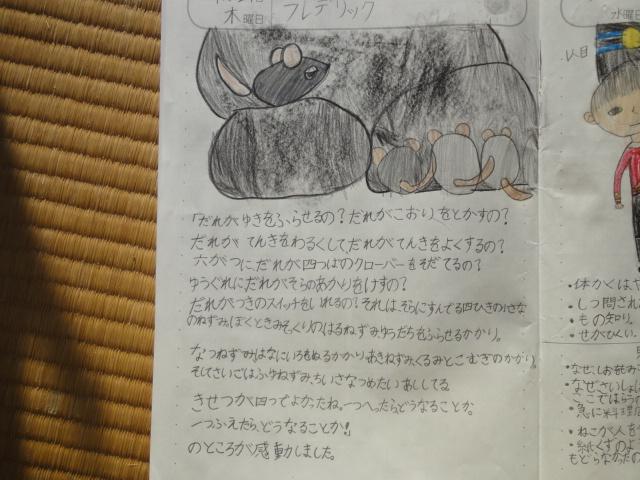 木曜日 フレデリック
「だれがゆきをふらせるの?だれがこおりをとかすの?
だれが てんきをわるくして、だれがてんきをよくするの?
六がつに、だれが四つばのクローバーをそだてるの?
ゆうぐれにだれがそらのあかりをけすの?
だれがつきのスイッチをいれるの?それは、そらにすんでる四ひきの小さな
のねずみ、ぼくときみそっくりの、はるねずみゆうだちをふらせるかかり。
なつねずみはなにいろをぬるかかり。あきねずみ、くるみとこむぎのかかり。
そしてさいごはふゆねずみ、ちいさなつめたいあししてる。
きせつが四つでよかったね。一つへったらどうなることか。
一つふえたら、どうなることか!
のところが感動しました。
水曜日
・体がくはや
・しつ問され
・もの知り。
・せがひくい。
・ねこが人を
・紙くずのよ
もどらなかったの